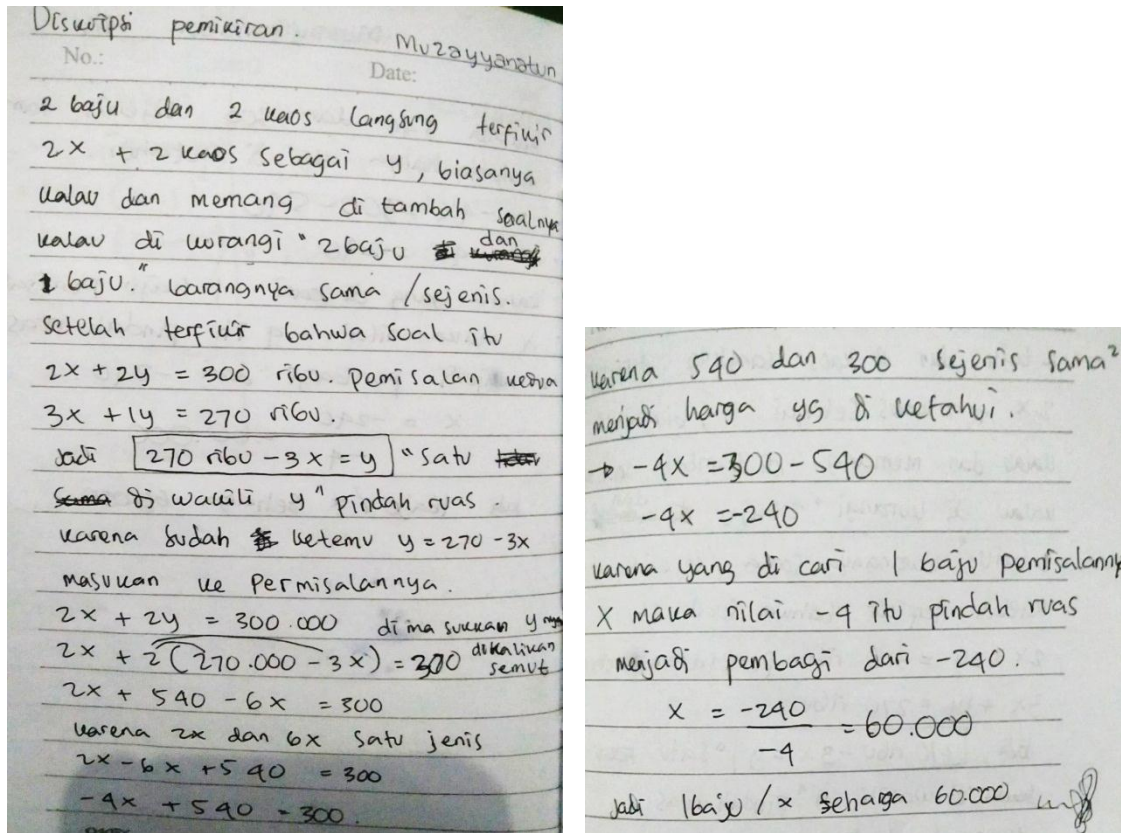 Diskripsi pemikiran.
Muzayyanatun
No.:
Date:
2 baju dan 2 kaos langsung terfikir
2x + 2 kaos sebagai y, biasanya
kalau dan memang di tambah soalnya
kalau di kurangi " 2 baju dan
1 baju." barangnya sama / sejenis.
setelah terfikir bahwa soal itu
2x + 2y = 300 ribu. Pemisalan kedua
3x + 1y = 270 ribu.
Jadi 270 ribu - 3x = y "satu
di wakili y" pindah ruas
karena sudah ketemu y = 270 - 3x
masukan ke Permisalannya.
2x + 2y = 300.000 di masukkan y nya
2x + 2(270.000 - 3x) = 300 dikalikan semut
2x + 540 - 6x = 300
karena 2x dan 6x satu jenis
2x - 6x + 540 = 300
-4x + 540 = 300.
karena 540 dan 300 sejenis sama²
menjadi harga yg di ketahui.
→ -4x = 300 - 540
-4x = -240
karena yang di cari 1 baju pemisalanny
x maka nilai -4 itu pindah ruas
menjadi pembagi dari -240.
x = -240 / -4 = 60.000
Jadi 1 baju / x seharga 60.000